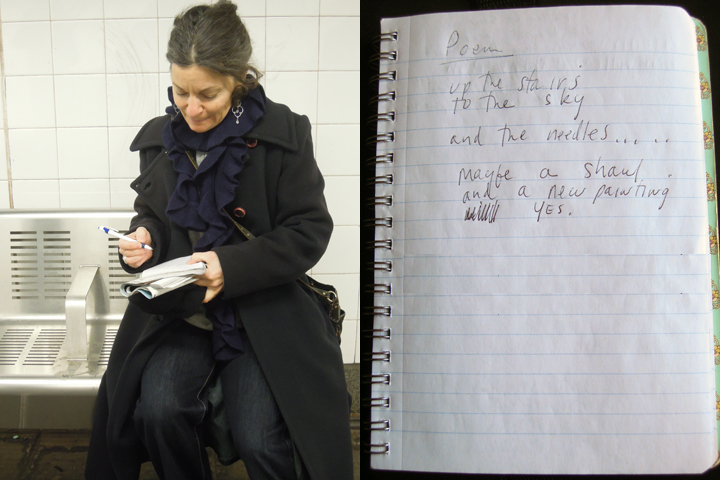 Poem
up the stairs
to the sky
and the needles.....
maybe a shawl.
and a new painting
YES.